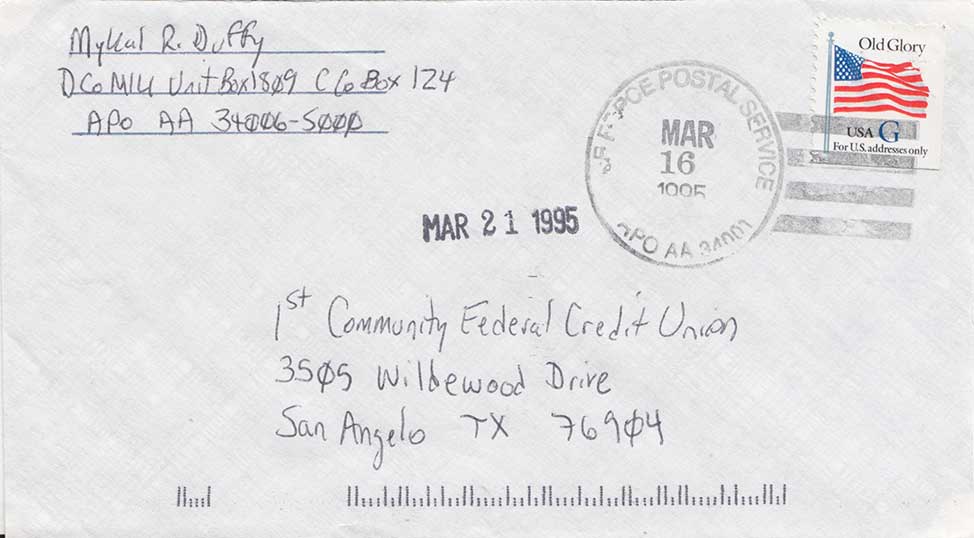 Mykal R. Duffy
D Co MIU Unit Box 1809 C Co Box 124
APO AA 34006-5000
Old Glory
USA G
For U.S. addresses only
FORCE POSTAL SERVICE
MAR
16
1995
APO AA 34001
MAR 21 1995
1st Community Federal Credit Union
3505 Wildewood Drive
San Angelo TX 76904